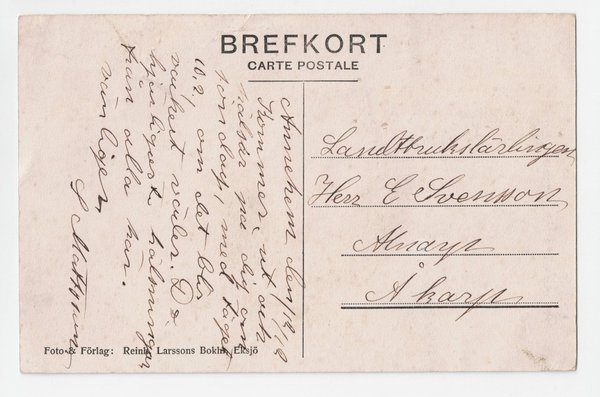 BREFKORT
CARTE POSTALE
Annehem den
Kommer ut och
hälsar på dig om
söndag, med tåget
10.2. om det blir
vackert väder. De
hjärtligaste hälsningar
från alla här.
vänligen
S Mattsson
Landtbrukslärlingen
Herr E Svensson
Alnarp
Åkarp
Foto & Förlag: Reinh. Larssons Bokh. Eksjö